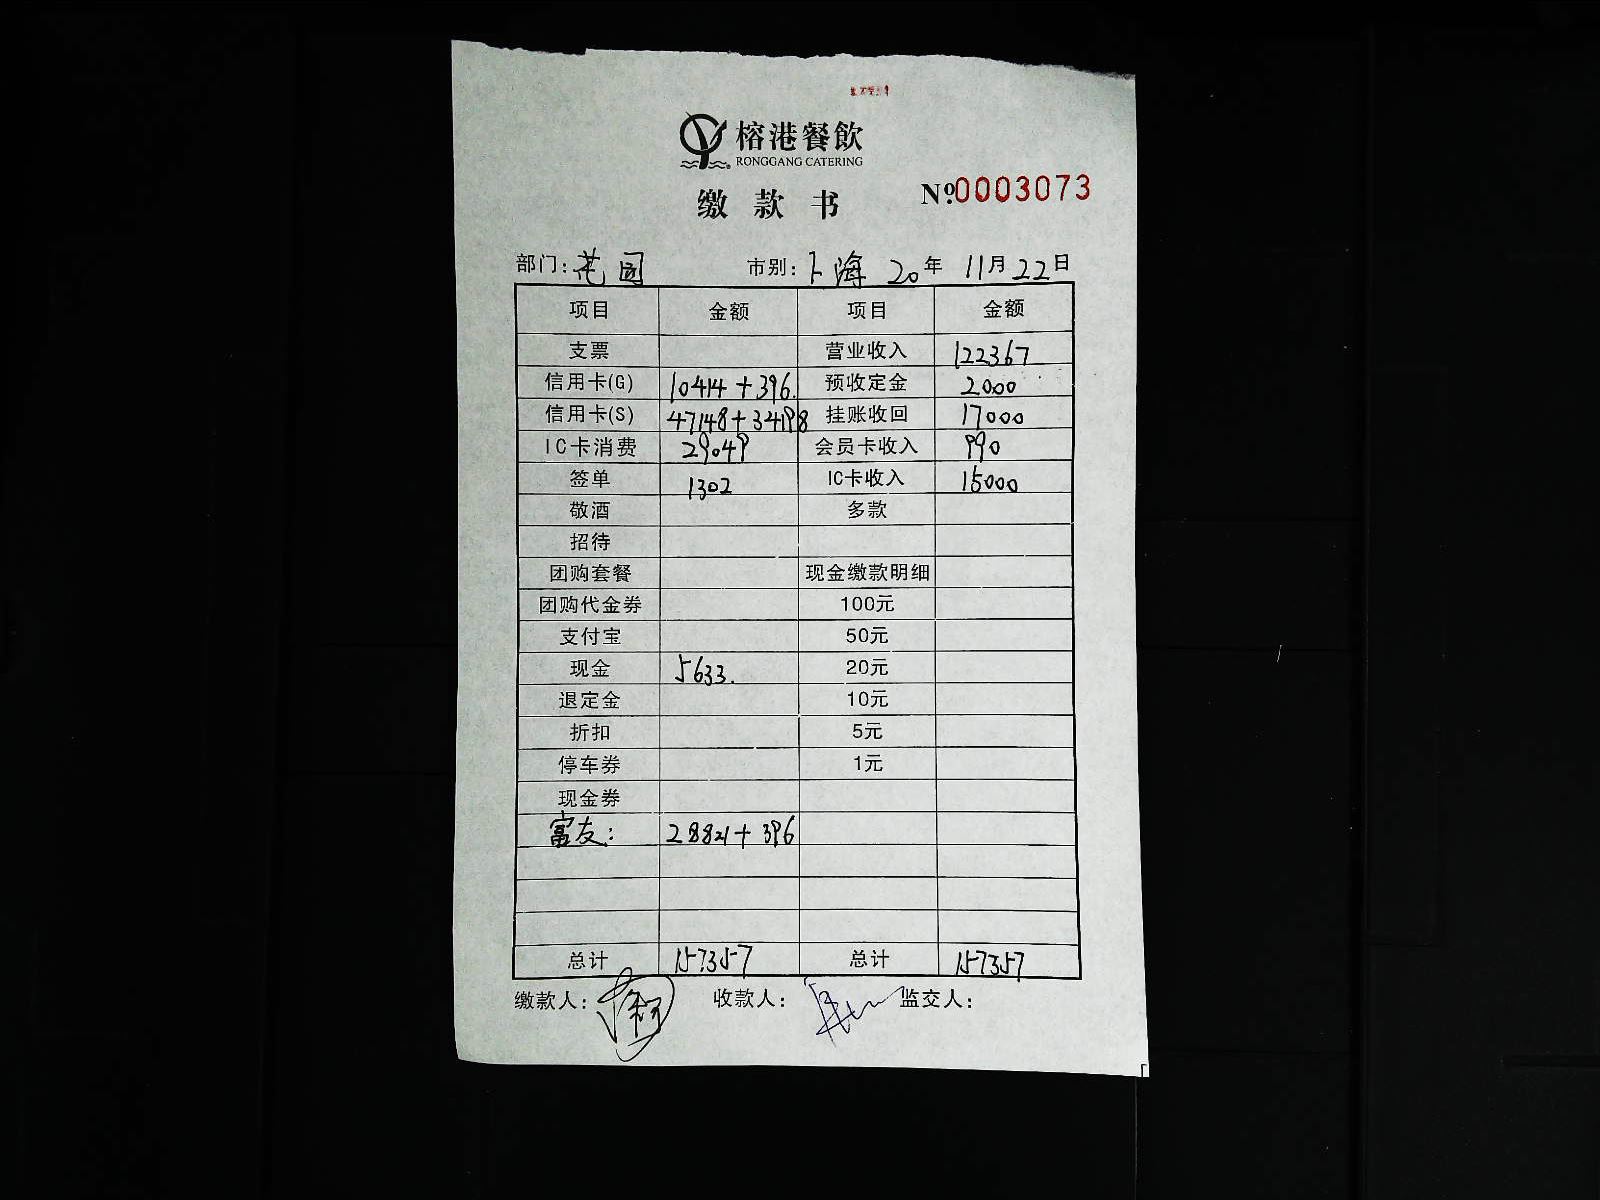 榕港餐飲
RONGGANG CATERING
缴款书 №0003073
部门:花园 市别:上海 20年 11月22日
项目 金额 项目 金额
支票 营业收入 122367
信用卡(G) 10414+396. 预收定金 2000
信用卡(S) 47148+34198 挂账收回 17000
IC卡消费 29049 会员卡收入 990
签单 1302 IC卡收入 15000
敬酒 多款
招待
团购套餐 现金缴款明细
团购代金券 100元
支付宝 50元
现金 5633. 20元
退定金 10元
折扣 5元
停车券 1元
现金券
富友: 28821+396
总计 157357 总计 157357
缴款人: 收款人: 监交人: